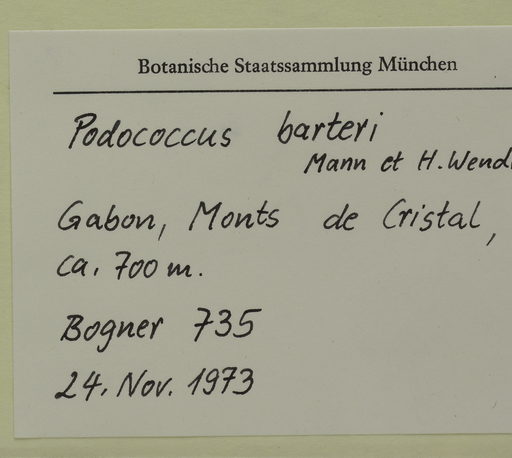 Botanische Staatssammlung München
Podococcus barteri
Mann et H. Wendl
Gabon, Monts de Cristal,
ca. 700 m.
Bogner 735
24. Nov. 1973